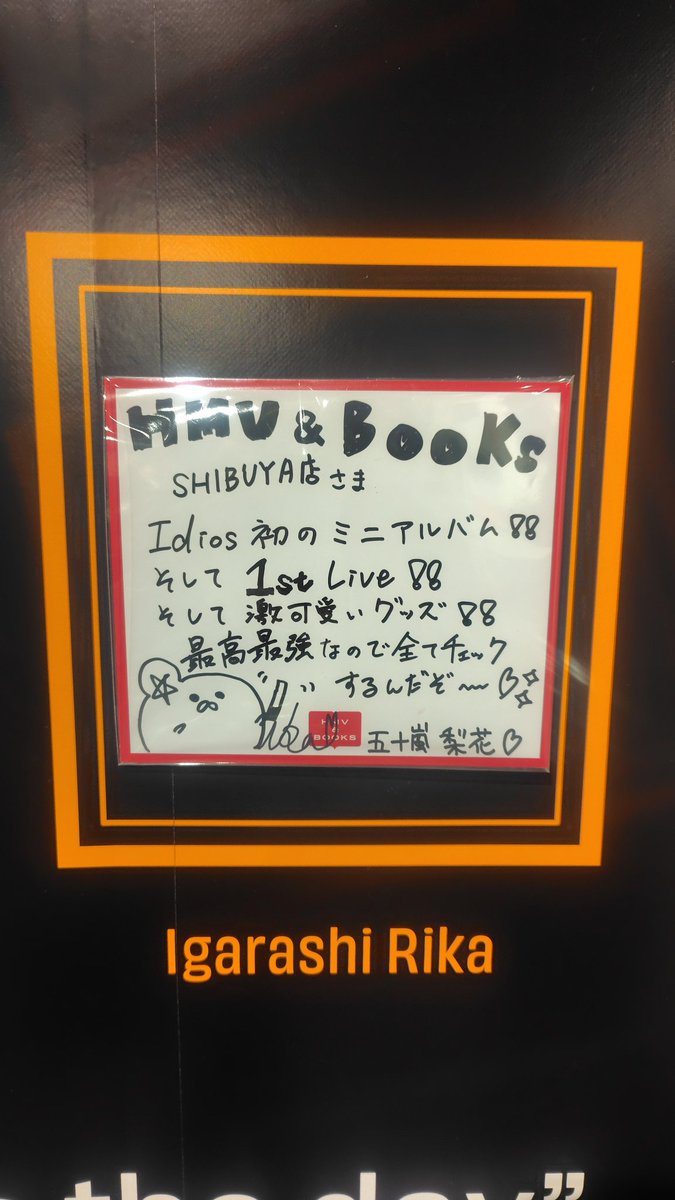 HMV & BOOKs
SHIBUYA店さま
Idios 初のミニアルバム!!
そして 1st Live!!
そして 激可愛いグッズ!!
最高最強なので全てチェック
するんだぞ〜♡
HMV
&
BOOKS
五十嵐 梨花♡
Igarashi Rika
the day”